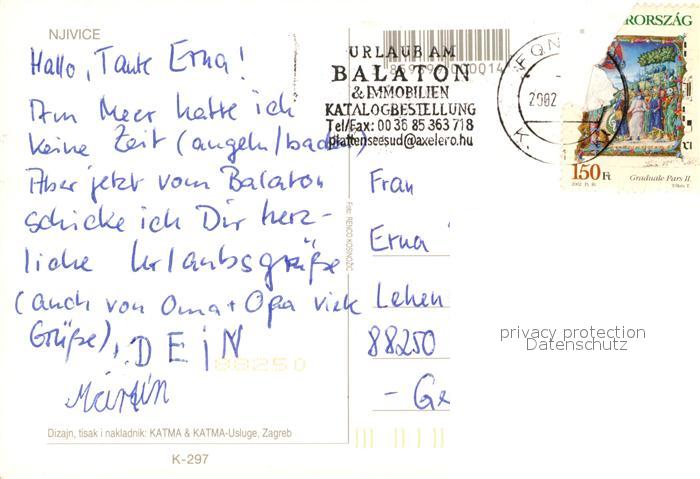 NJIVICE
Hallo, Tante Erna!
Am Meer hatte ich
keine Zeit (angeln/baden)
Aber jetzt vom Balaton
schicke ich Dir herz-
liche Urlaubsgrüße
(auch von Oma + Opa viele
Grüße), DEIN
88250
Martin
Dizajn, tisak i nakladnik: KATMA & KATMA-Usluge, Zagreb
K-297
URLAUB AM
BALATON
& IMMOBILIEN
KATALOGBESTELLUNG
Tel/Fax: 00 36 85 363 718
plattenseesud@axelero.hu
2002
RORSZÁG
150 Ft
Graduale Pars II.
Frau
Erna
Lehen
88250
- Ge
privacy protection
Datenschutz